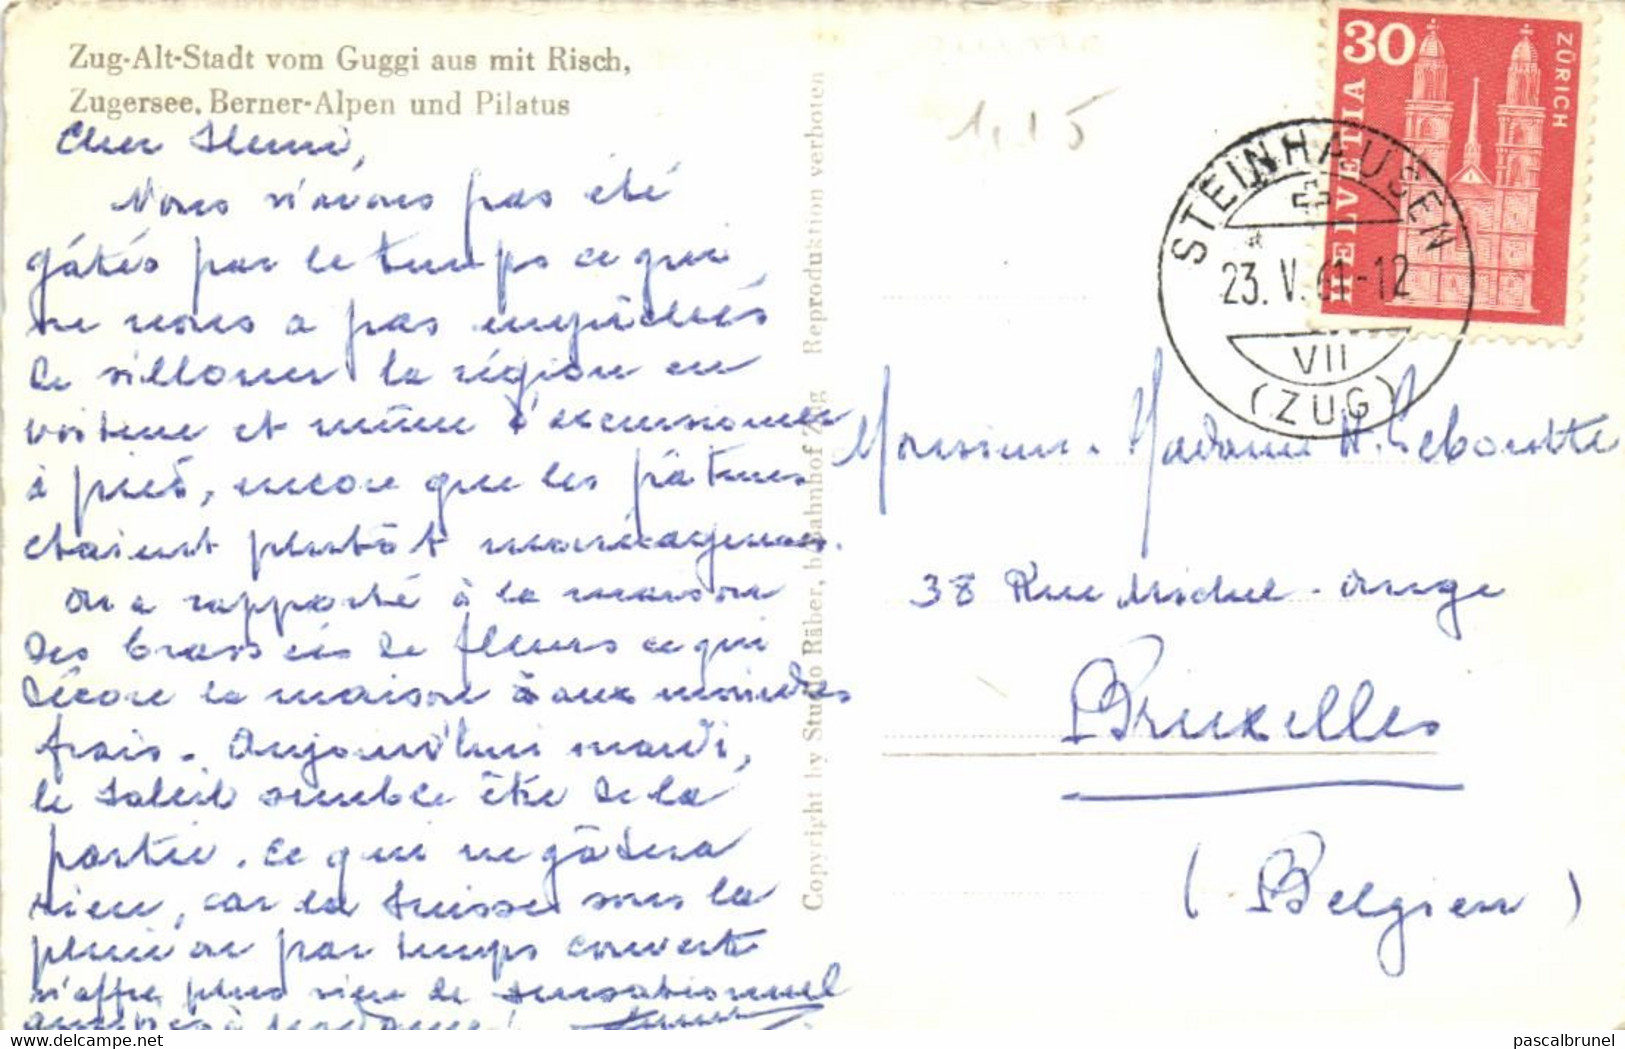 Zug-Alt-Stadt vom Guggi aus mit Risch,
Zugersee, Berner-Alpen und Pilatus
Cher Henri,
Nous n'avons pas été
gâtés par le temps ce qui
ne nous a pas empêchés
de sillonner la région en
voiture et même d'excursionner
à pied, encore que les
étaient plutôt marécageuses.
On a rapporté à la maison
des brassées de fleurs ce qui
décore la maison à aux moindres
frais. Aujourd'hui mardi,
le soleil semble être de la
partie. Ce qui ne gâtera
rien, car la Suisse sous la
pluie ou par temps couvert
n'offre plus rien de sensationnel
Copyright by Studio Räber, b. Bahnhof Zug Reproduktion verboten
1,15
30
HELVETIA
ZÜRICH
STEINHAUSEN
23. V. 61-12
VII
(ZUG)
Monsieur - Madame H. Leboutte
38 Rue Michel-Ange
Bruxelles
(Belgien)
delcampe.net
pascalbrunel